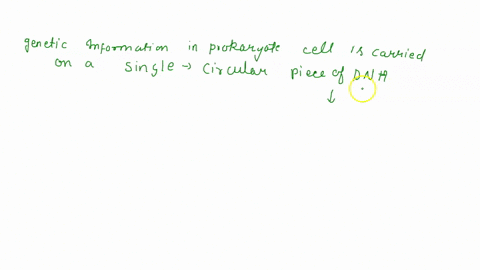 genetic information in prokaryote cell is carried
on a single → circular piece of DNA
↓